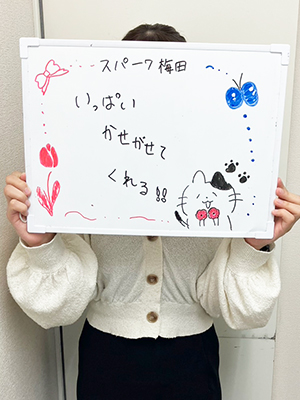 スパーク梅田
いっぱい
かせがせて
くれる!!